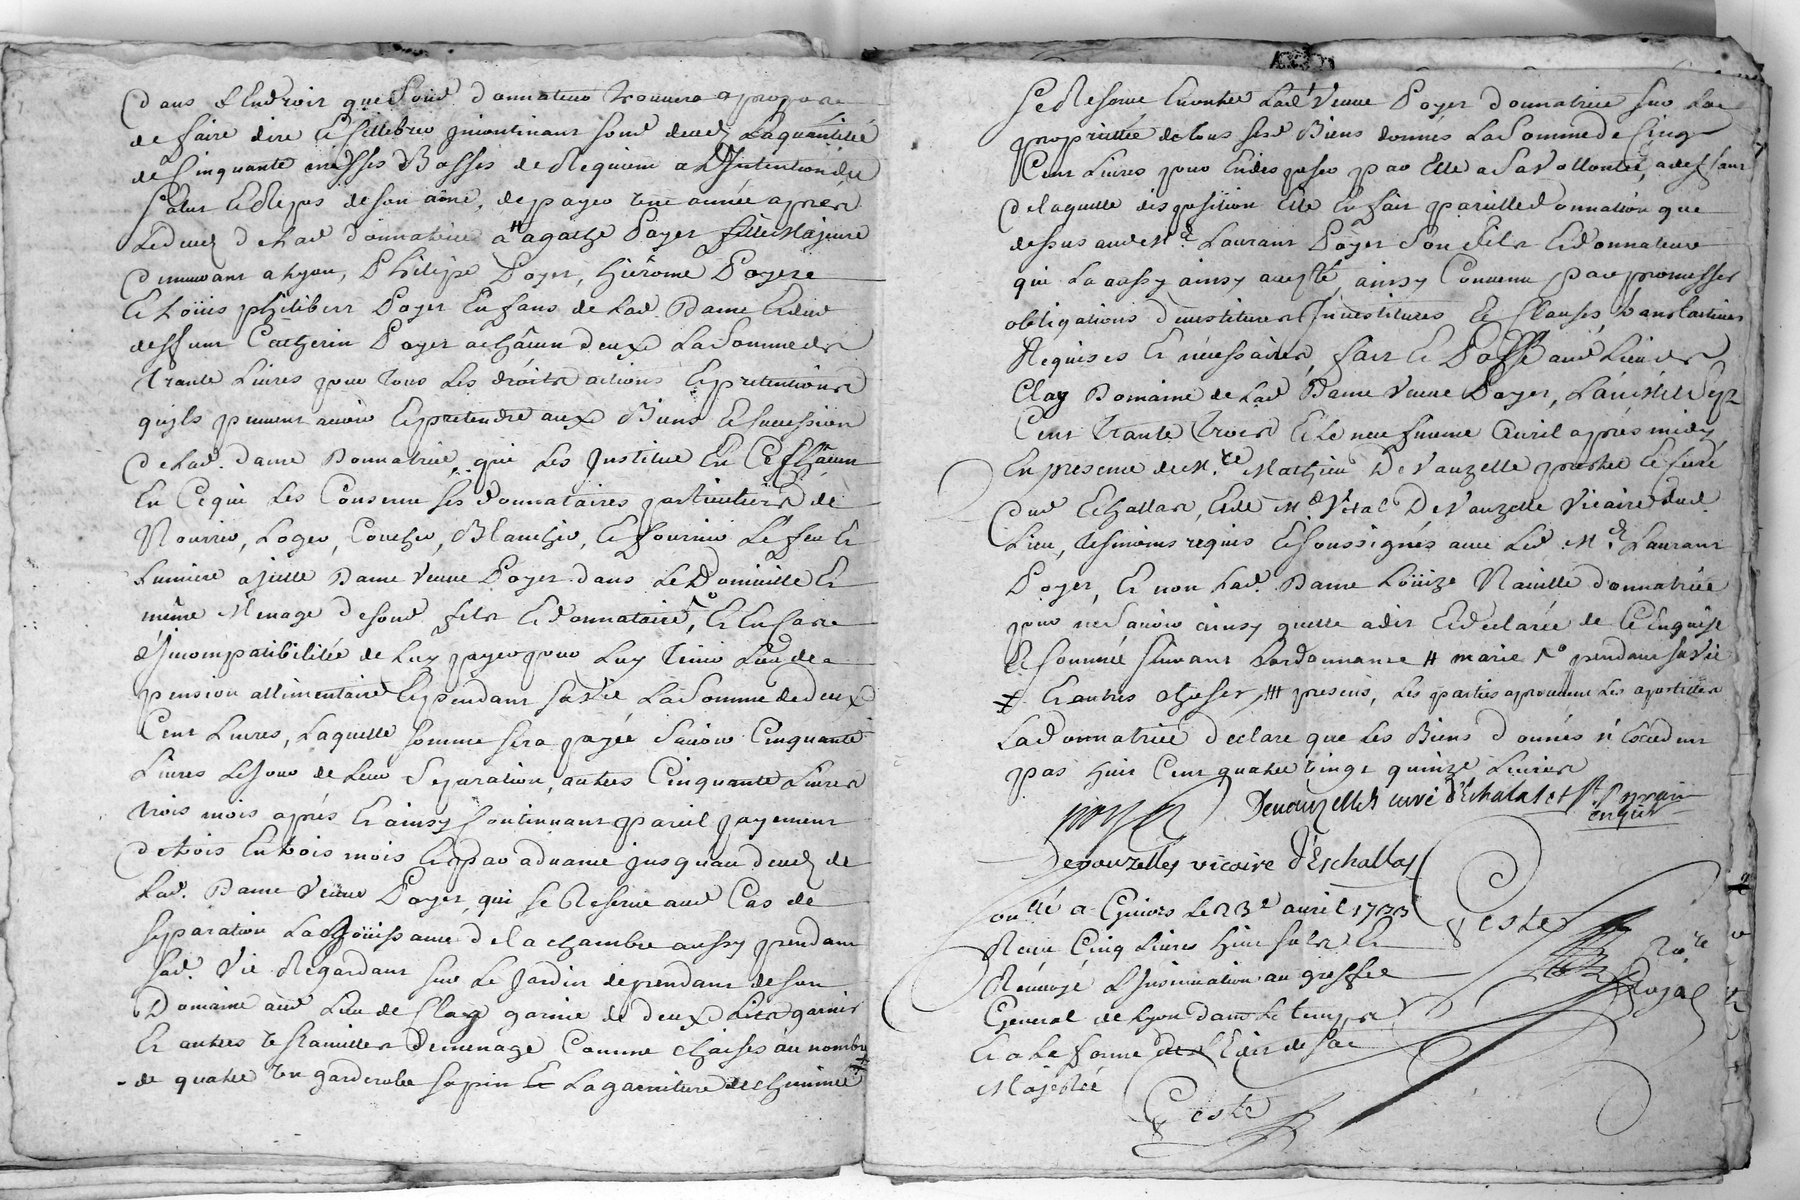 Dans L'Endroit que Sond. donnateur trouvera apropos
de faire dire Et Cellebrer incontinant sond. deced Laquantitée
de Cinquante messes Basses de Requiem a L'Intention du
Salut Et Repos deson ame, depayer une année après
Ledeced delad. donnatrice a # agathe Poyer fille Majeure
demeurant a Lyon, Philipe Poyer, hierôme Poyer
Et Loüis philibert Poyer Enfans de Lad. Dame Etdud.
deffunt Catherin Poyer achâcun deux LaSomme de
trante Livres pour tous Les droits actions Et pretentions
quils peuvent avoir Et pretendre aux Biens Et succession
de Lad. dame Donnatrice, qui Les Institue En
En Cequi Les Conserne ses donnataires particuliers de
Nourrir, Loger, Coucher, Blanchir, Et fournir Le feu Et
Lumiere a Dame veuve Poyer dans Le Domicille Et
même Menage desond. fils Et donnataire, Et En Cas
d'Jncompatibilitée de Luy payer pour Luy tenir Lieu de
pension allimentaire Et pendant sa Vie La Somme de deux
Cent Livres, Laquelle somme sera payée Savoir Cinquante
Livres Lejour de Leur Separation, autres Cinquante Livres
trois mois après Et ainsy Continuant pareil payement
detrois En trois mois Et par advance jusquau deced de
Lad. Dame Veuve Poyer, qui se Reserve aud. Cas de
separation La Joüissance de la chambre aussy pendant
sad. Vie Regardant sur Le Jardin dependant de son
Domaine aud. Lieu de Clay garnie de deux Lits garnis
Et autres Ustancilles de menage Comme chaises au nombre
de quatre un garderobe sapin Et La garniture de cheminée #
se Reserve En outre Lad. Veuve Poyer donnatrice sur La
proprietée de tous ses Biens donnés LaSomme de Cinq
Cent Livres pour En disposer par Elle a Sa Vollontée, a deffaut
delaquelle disposition Elle En fait pareille donnation que
dessus aud. Mr. Laurant Poyer Son fils Et donnateur
qui La aussy ainsy accepté, ainsy Convenu par promesses
obligations Investitures Et Clauses translatives
Requises Et nécessaires, fait Et Passé aud. Lieu de
Clay Domaine de Lad. Dame veuve Poyer, L'an Mil Sept
Cent trante trois Et Le neufvieme avril après midy
En presence de Mre Mathieu Devauzelle prestre Et Curé
dud. Echallas, Et de Mre Vital DeVauzelle Vicaire dud.
Lieu, tesmoins requis Et soussignés avec Led. Mr. Laurant
Poyer, Et non Lad. Dame Loüize donnatrice
pour ne Savoir ainsy quelle a dit Et déclarée de Ce Enquise
Et sommée suivant Lordonnance # marie pendant sa Vie
# Et autres choses ### presens, Les parties aprouvent Les apostilles
La donnatrice declare que Les Biens donnés n'Excedent
pas huit Cent quatre vingt quinze Livres
poyer Devauzelles curé d'Echalas
Devauzelles vicaire d'Eschallas
Conllé a Givors Le 23e avril 1733
Receu Cinq Livres huit sols Et
Renvoyé L'Insinuation au greffe
General de Lyon dans Le temps
Et a La forme de L'Edit de Sa
Majestée
Geste
Geste Nore
Royal